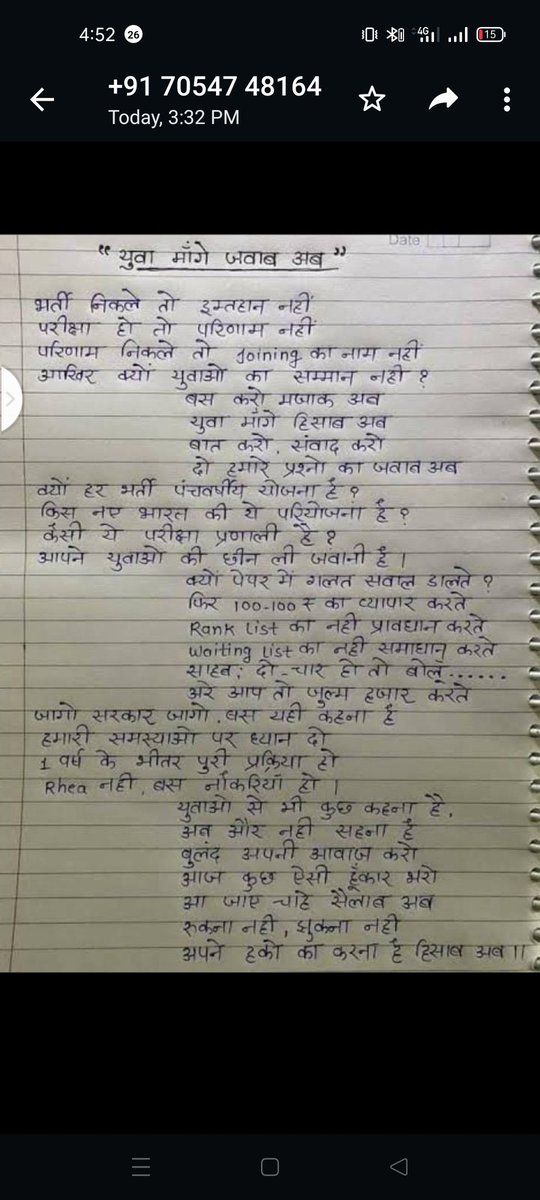 4:52 26 4G 15
+91 70547 48164
Today, 3:32 PM
Date
" युवा माँगे जवाब अब "
भर्ती निकले तो इम्तहान नहीं
परीक्षा हो तो परिणाम नहीं
परिणाम निकले तो Joining का नाम नहीं
आखिर क्यों युवाओ का सम्मान नही ?
बस करो मजाक अब
युवा माँगे हिसाब अब
बात करो, संवाद करो
दो हमारे प्रश्नो का जवाब अब
क्यों हर भर्ती पंचवर्षीय योजना है ?
किस नए भारत की ये परियोजना है ?
कैसी ये परीक्षा प्रणाली है ?
आपने युवाओ की छीन ली जवानी है ।
क्यों पेपर में गलत सवाल डालते ?
फिर 100-100 ₹ का व्यापार करते
Rank List का नही प्रावधान करते
Waiting List का नही समाधान करते
साहब; दो-चार हो तो बोलूं......
अरे आप तो जुल्म हजार करते
जागो सरकार जागो, बस यही कहना है
हमारी समस्याओ पर ध्यान दो
1 वर्ष के भीतर पुरी प्रक्रिया हो
Rhea नही, बस नौकरियाँ हो ।
युवाओ से भी कुछ कहना है,
अब और नही सहना है
बुलंद अपनी आवाज़ करो
आज कुछ ऐसी हूँकार भरो
आ जाए चाहे सैलाब अब
रुकना नही, झुकना नही
अपने हको का करना है हिसाब अब ।।